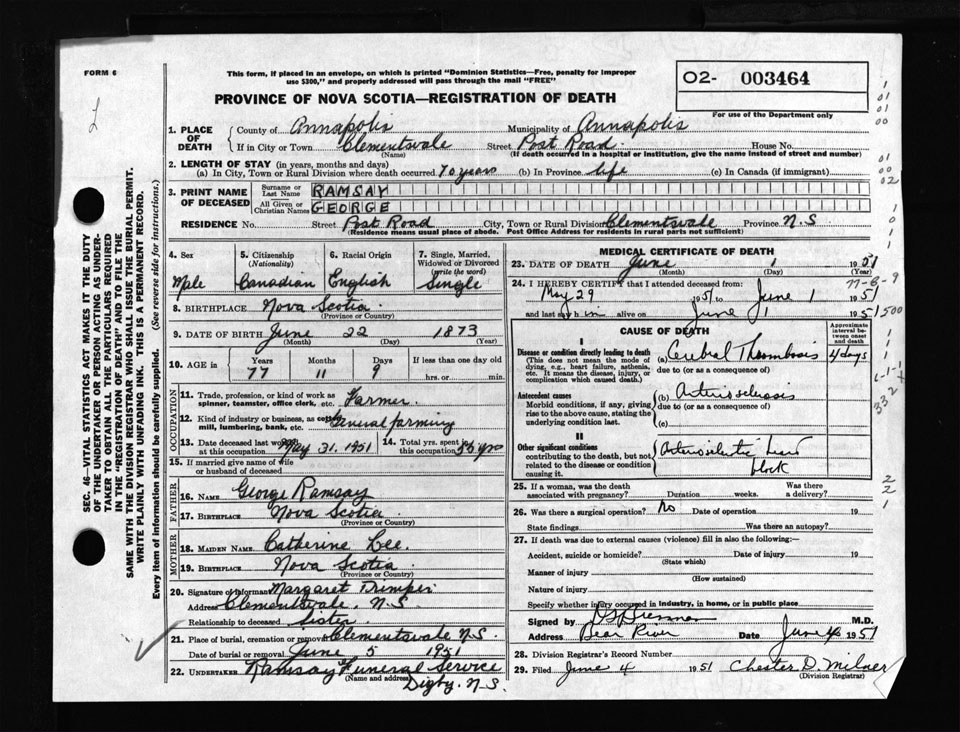 FORM 6
This form, if placed in an envelope, on which is printed "Dominion Statistics—Free, penalty for improper
use $300," and properly addressed will pass through the mail "FREE"
O2- 003464
For use of the Department only
PROVINCE OF NOVA SCOTIA—REGISTRATION OF DEATH
1. PLACE OF DEATH
County of Annapolis Municipality of Annapolis
If in City or Town Clementsvale Street Post Road House No.
(Name) (If death occurred in a hospital or institution, give the name instead of street and number)
2. LENGTH OF STAY (in years, months and days)
(a) In City, Town or Rural Division where death occurred 70 years (b) In Province life (c) In Canada (if immigrant)
3. PRINT NAME OF DECEASED
Surname or Last Name RAMSAY
All Given or Christian Names GEORGE
RESIDENCE No. Street Post Road City, Town or Rural Division Clementsvale Province N.S
(Residence means usual place of abode. Post Office Address for residents in rural parts not sufficient)
4. Sex
Male
5. Citizenship
(Nationality)
Canadian
6. Racial Origin
English
7. Single, Married,
Widowed or Divorced
(write the word)
Single
8. BIRTHPLACE Nova Scotia
(Province or Country)
9. DATE OF BIRTH June 22 1873
(Month) (Day) (Year)
10. AGE in
Years Months Days If less than one day old
77 11 9 hrs. or min.
OCCUPATION
11. Trade, profession, or kind of work as
spinner, teamster, office clerk, etc. Farmer
12. Kind of industry or business, as
mill, lumbering, bank, etc. General farming
13. Date deceased last worked
at this occupation May 31. 1951
14. Total yrs. spent in
this occupation 55 yrs
15. If married give name of wife
or husband of deceased
FATHER
16. NAME George Ramsay
17. BIRTHPLACE Nova Scotia
(Province or Country)
MOTHER
18. MAIDEN NAME Catherine Lee.
19. BIRTHPLACE Nova Scotia
(Province or Country)
20. Signature of informant Margaret Trimper
Address Clementsvale, N.S.
Relationship to deceased Sister
21. Place of burial, cremation or removal Clementsvale N.S.
Date of burial or removal June 5 1951
22. UNDERTAKER Ramsay Funeral Service
(Name and address) Digby. N.S.
MEDICAL CERTIFICATE OF DEATH
23. DATE OF DEATH June 1 1951
(Month) (Day) (Year)
24. I HEREBY CERTIFY that I attended deceased from:
May 29 1951 to June 1 1951
and last saw him alive on June 1 1951
CAUSE OF DEATH
Approximate
interval between
onset
and death
I
Disease or condition directly leading to death
(This does not mean the mode of
dying, e.g., heart failure, asthenia,
etc. It means the disease, injury, or
complication which caused death.)
(a) Cerebral Thrombosis 4 days
due to (or as a consequence of)
Antecedent causes
Morbid conditions, if any, giving
rise to the above cause, stating the
underlying condition last.
(b) Arteriosclerosis
due to (or as a consequence of)
(c)
II
Other significant conditions
contributing to the death, but not
related to the disease or condition
causing it.
block
25. If a woman, was the death
associated with pregnancy? Duration weeks. Was there
a delivery?
26. Was there a surgical operation? No Date of operation 19
State findings Was there an autopsy?
27. If death was due to external causes (violence) fill in also the following:
Accident, suicide or homicide? Date of injury 19
(State which)
Manner of injury
(How sustained)
Nature of injury
Specify whether injury occurred in industry, in home, or in public place
Signed by M.D.
Address Bear River Date June 4 1951
28. Division Registrar's Record Number
29. Filed June 4 1951 Chester D. Milner
(Division Registrar)
SEC. 46-VITAL STATISTICS ACT MAKES IT THE DUTY
OF THE UNDERTAKER OR PERSON ACTING AS UNDER-
TAKER TO OBTAIN ALL THE PARTICULARS REQUIRED
IN THE "REGISTRATION OF DEATH" AND TO FILE THE
SAME WITH THE DIVISION REGISTRAR WHO SHALL ISSUE THE BURIAL PERMIT.
WRITE PLAINLY WITH UNFADING INK. THIS IS A PERMANENT RECORD.
Every item of information should be carefully supplied. (See reverse side for instructions.)